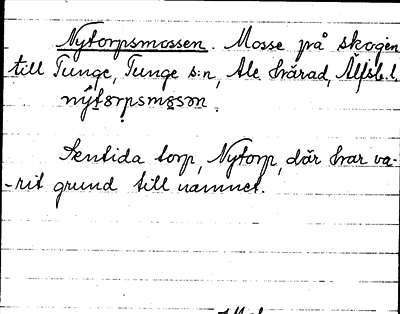 Nytorpsmossen. Mosse på skogen
till Tunge, Tunge s:n, Ale härad, Älfsb. l.
nýtorpsmosən.
Sentida torp, Nytorp, där har va-
-rit grund till namnet.